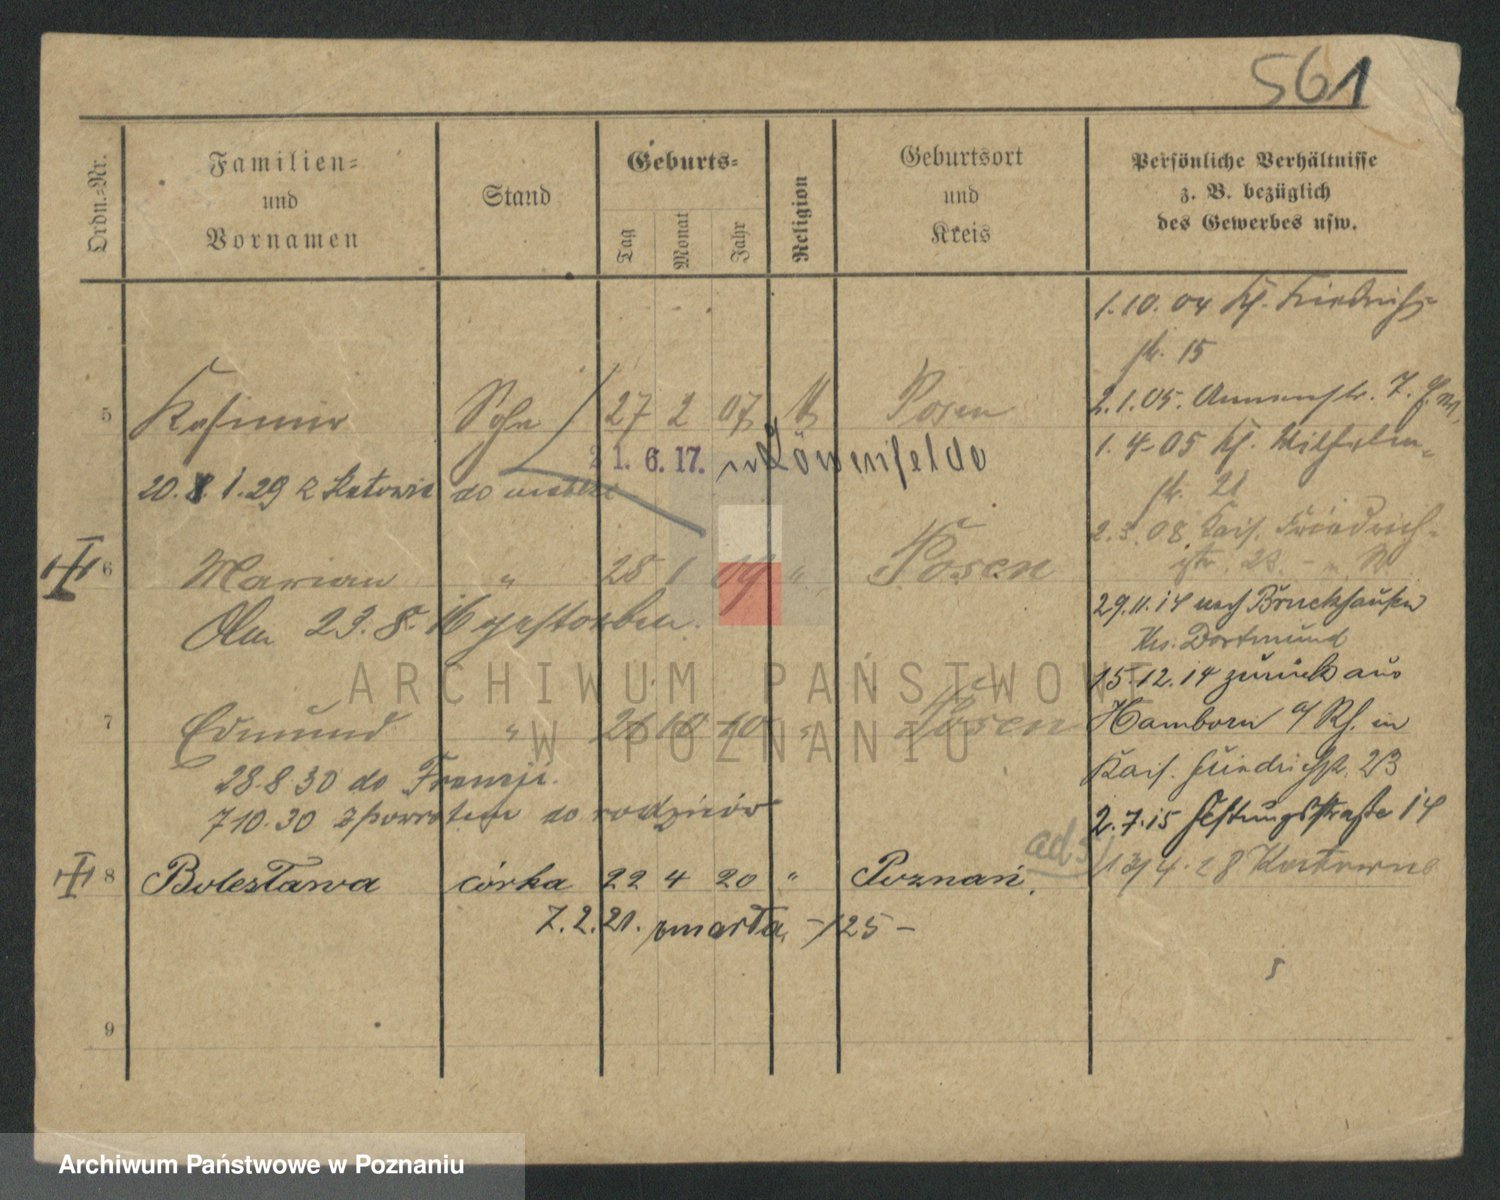 561
Ordn.-Nr.
Familien-
und
Vornamen
Stand
Geburts-
Tag
Monat
Jahr
Religion
Geburtsort
und
Kreis
Persönliche Verhältnisse
z. B. bezüglich
des Gewerbes usw.
1.10.04
str. 15
5 Kasimir Sohn 27 2 07 Posen
2.1.05.
21.6.17. Löwenfelde
1.4.05
20. 1.29 z Katowic do
str. 21
6 Marian " 28 1 09 " Posen
2.3.08 Kais. Friedrich-
str.
Am 23.8. 16 gestorben.
29.11.14 nach Bruckhausen
Krs. Dortmund
15.12.14 zurück aus
7 Edmund " 26 10 10 " Posen
Hamborn a/Rh. in
28.8.30 do Francji.
Kais. Friedrichstr. 23
7 10.30 z powrotem do rodziców
2.7.15 Festungsstraße 14
ad 5/
8 Bolesława córka 22 4 20 " Poznań.
7.2.21. zmarła, -/25-
9
ARCHIWUM PAŃSTWOWE
W POZNANIU
Archiwum Państwowe w Poznaniu